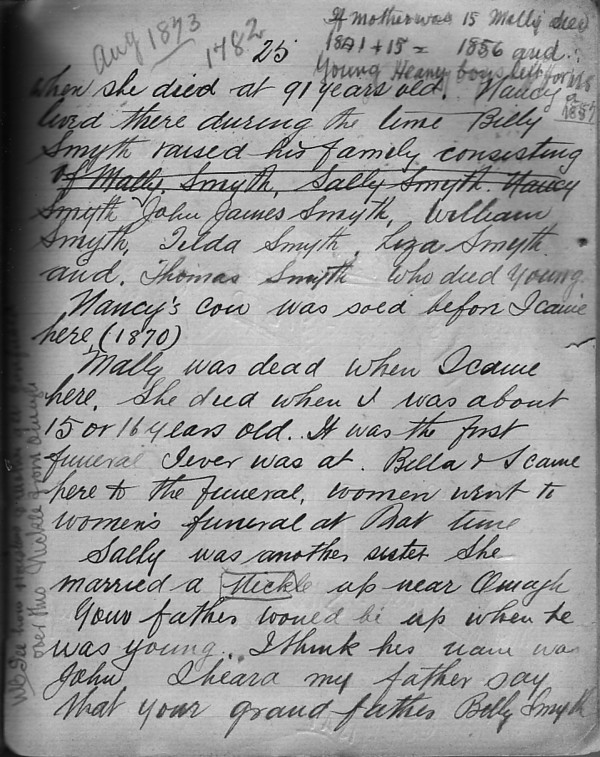 Aug 1873
1782
25
If mother was 15 Mally died
1841 + 15 = 1856 and
Young Heany boys left for U.S
1857
when she died at 91 years old. Nancy
lived there during the time Billy
Smyth raised his family consisting
of Mally Smyth, Sally Smyth. Nancy
Smyth John James Smyth, William
Smyth, Tilda Smyth, Liza Smyth
and. Thomas Smyth who died young.
Nancy's cow was soed before I came
here (1870)
Mally was dead when I came
here. She died when I was about
15 or 16 years old. It was the first
funeral I ever was at. Bella & I came
here to the funeral, women went to
women's funeral at that time
Sally was another sister She
married a Nickle up near Omagh
Your father would be up when he
was young. I think his name was
John I heard my father say
that your grandfather Billy Smyth